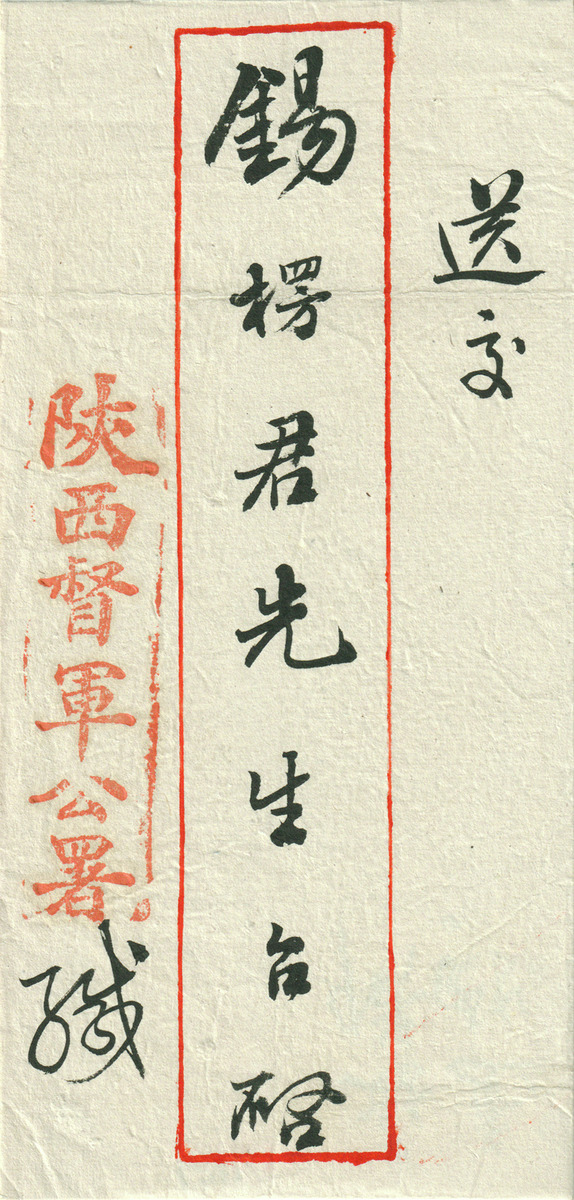 送交
錫楞君先生台啓
陝西督軍公署
緘